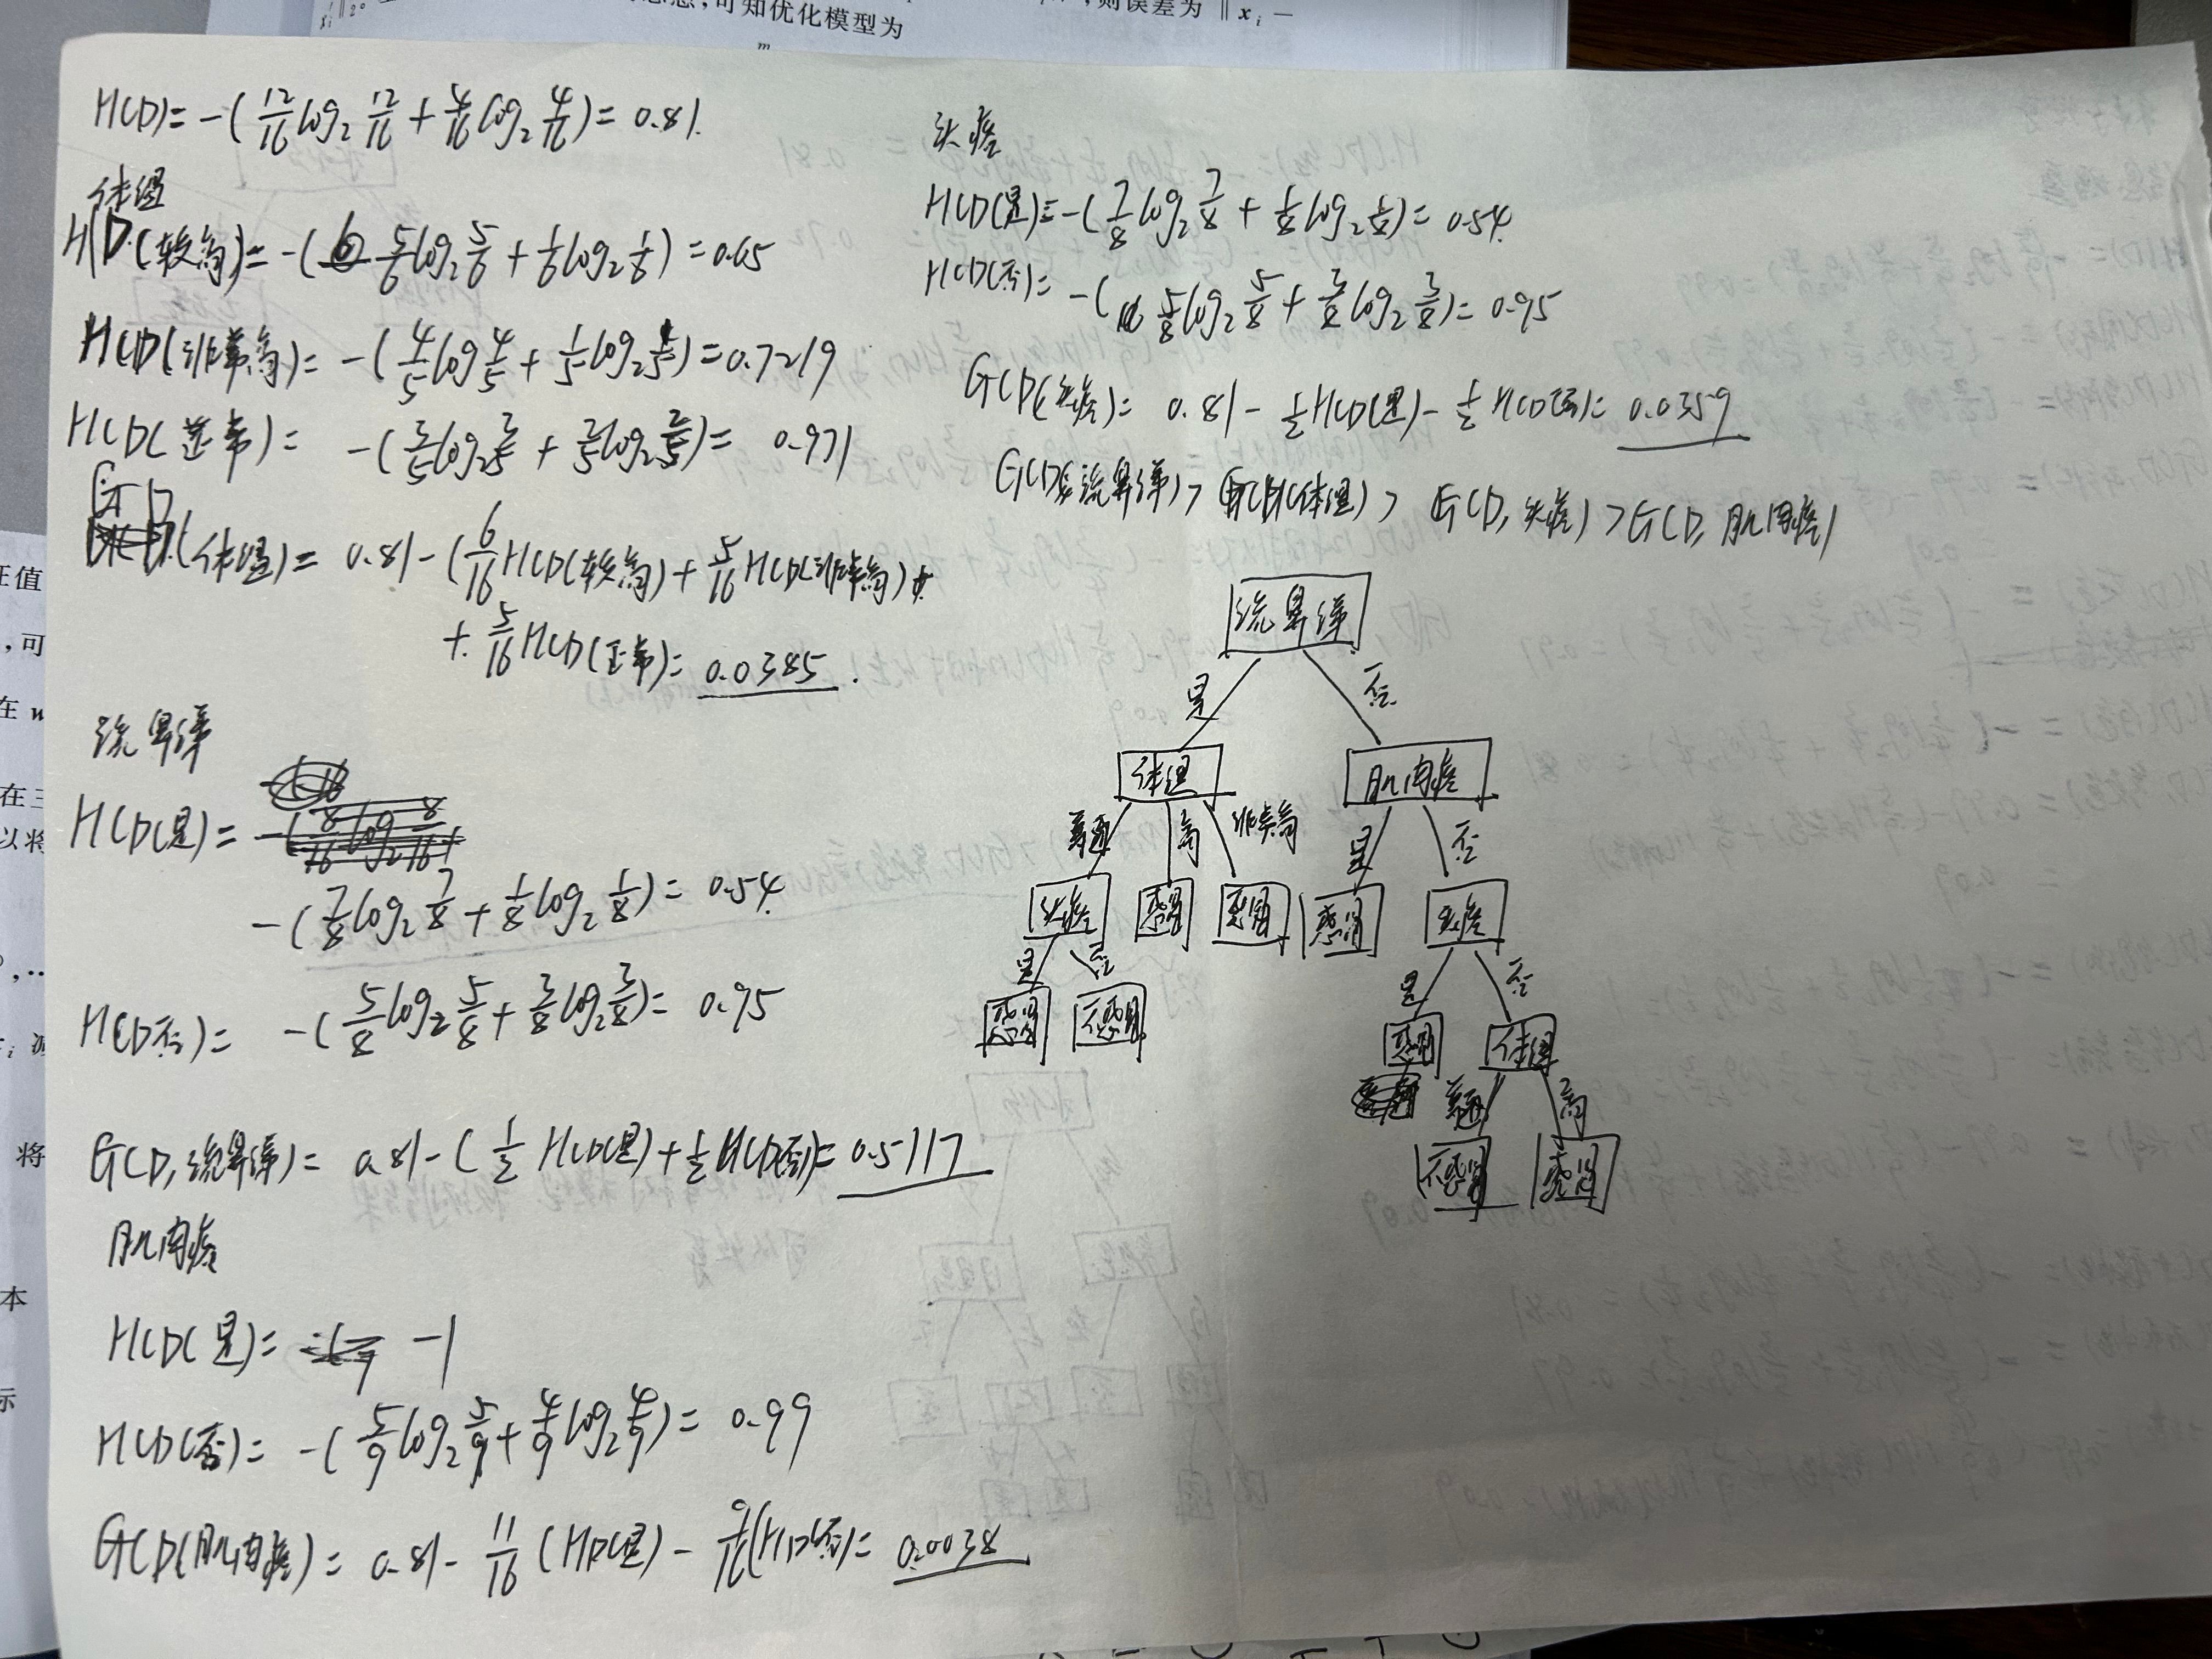 ,可知优化模型为
,则误差为 ‖ x_i −
m
H(D)= -(12/16 log₂ 12/16 + 4/16 log₂ 4/16)= 0.81.
体温
H(D(较高)= -(5/6 log₂ 5/6 + 1/6 log₂ 1/6)=0.65
H(D(非常高)= -(4/5 log 4/5 + 1/5 log₂ 1/5)=0.7219
H(D(正常)= -(3/5 log₂ 3/5 + 2/5 log₂ 2/5)= 0.971
G(D(体温)= 0.81-(6/16 H(D(较高)+ 5/16 H(D(非常高)+
+ 5/16 H(D(正常)= 0.0385.
流鼻涕
H(D(是)=
-(7/8 log₂ 7/8 + 1/8 log₂ 1/8)= 0.54
H(D否)= -(5/8 log₂ 5/8 + 3/8 log₂ 3/8)= 0.95
G(D,流鼻涕)= 0.81-(1/2 H(D(是)+1/2 H(D(否)= 0.5117
肌肉疼
H(D(是)= -1
H(D(否)= -(5/9 log₂ 5/9 + 4/9 log₂ 4/9)= 0.99
G(D(肌肉疼)= 0.81- 11/16 (H(D(是)- 9/16(H(D(否)= 0.0038
头疼
H(D(是)=-(7/8 log₂ 7/8 + 1/8 log₂ 1/8)= 0.54.
H(D(否)= -(5/8 log₂ 5/8 + 3/8 log₂ 3/8)= 0.95
G(D(头疼)= 0.81- 1/2 H(D(是)- 1/2 H(D(否)= 0.0359
G(D(流鼻涕)> G(D(体温)> G(D,头疼)>G(D,肌肉疼)
流鼻涕
是 否
体温 肌肉疼
普通 高 非常高 是 否
头疼 感冒 感冒 感冒 头疼
是 否 是 否
感冒 不感冒 感冒 体温
普通 高
不感冒 感冒
征值
,可
在 w
在三
以将
将
本
示